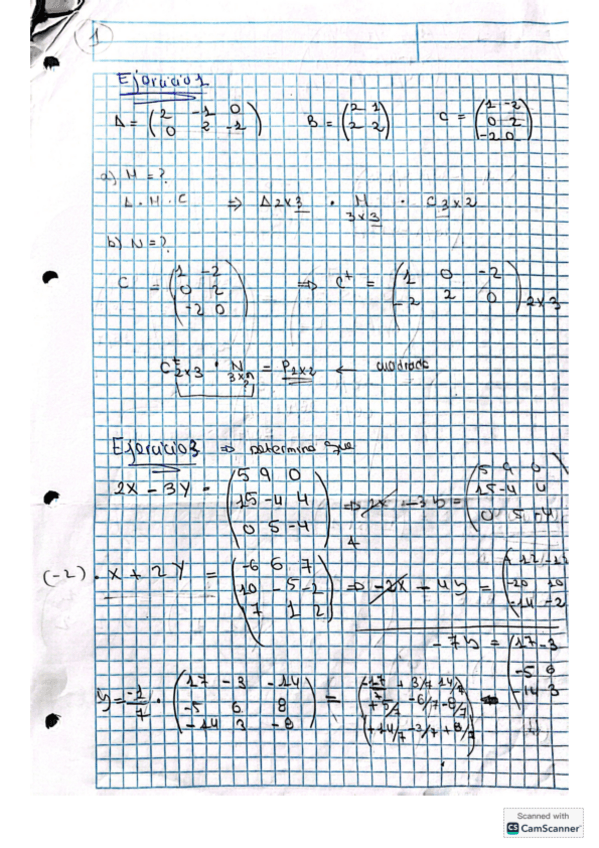 1
Ejercicio 1
A = (2 -1 0 / 0 2 -1) B = (2 1 / 2 2) C = (1 -2 / 0 2 / -2 0)
a) M = ?
A · M · C ⇒ A 2x3 · M 3x3 · C 3x2
b) N = ?
C = (1 -2 / 0 2 / -2 0) ⇒ C^t = (1 0 -2 / -2 2 0) 2x3
C^t 2x3 · N 3xn? = P 2x2 ← cuadrada
Ejercicio 3 ⇒ Determina que
2X - 3Y = (5 9 0 / 15 -4 4 / 0 5 -4) ⇒ 2x - 3y = (5 9 0 / 15 -4 4 / 0 5 -4)
(-2) · X + 2Y = (-6 6 7 / 10 -5 -2 / 7 1 2) ⇒ -2x - 4y = (12 -12 / -20 10 / -14 -2
-7y = (17 -3 / -5 6 / -14 3
y = -1/7 · (17 -3 -14 / -5 6 8 / -14 3 -8) = (-17/7 +3/7 14/7 / +5/7 -6/7 -8/7 / +14/7 -3/7 +8/7)
Scanned with
CS CamScanner